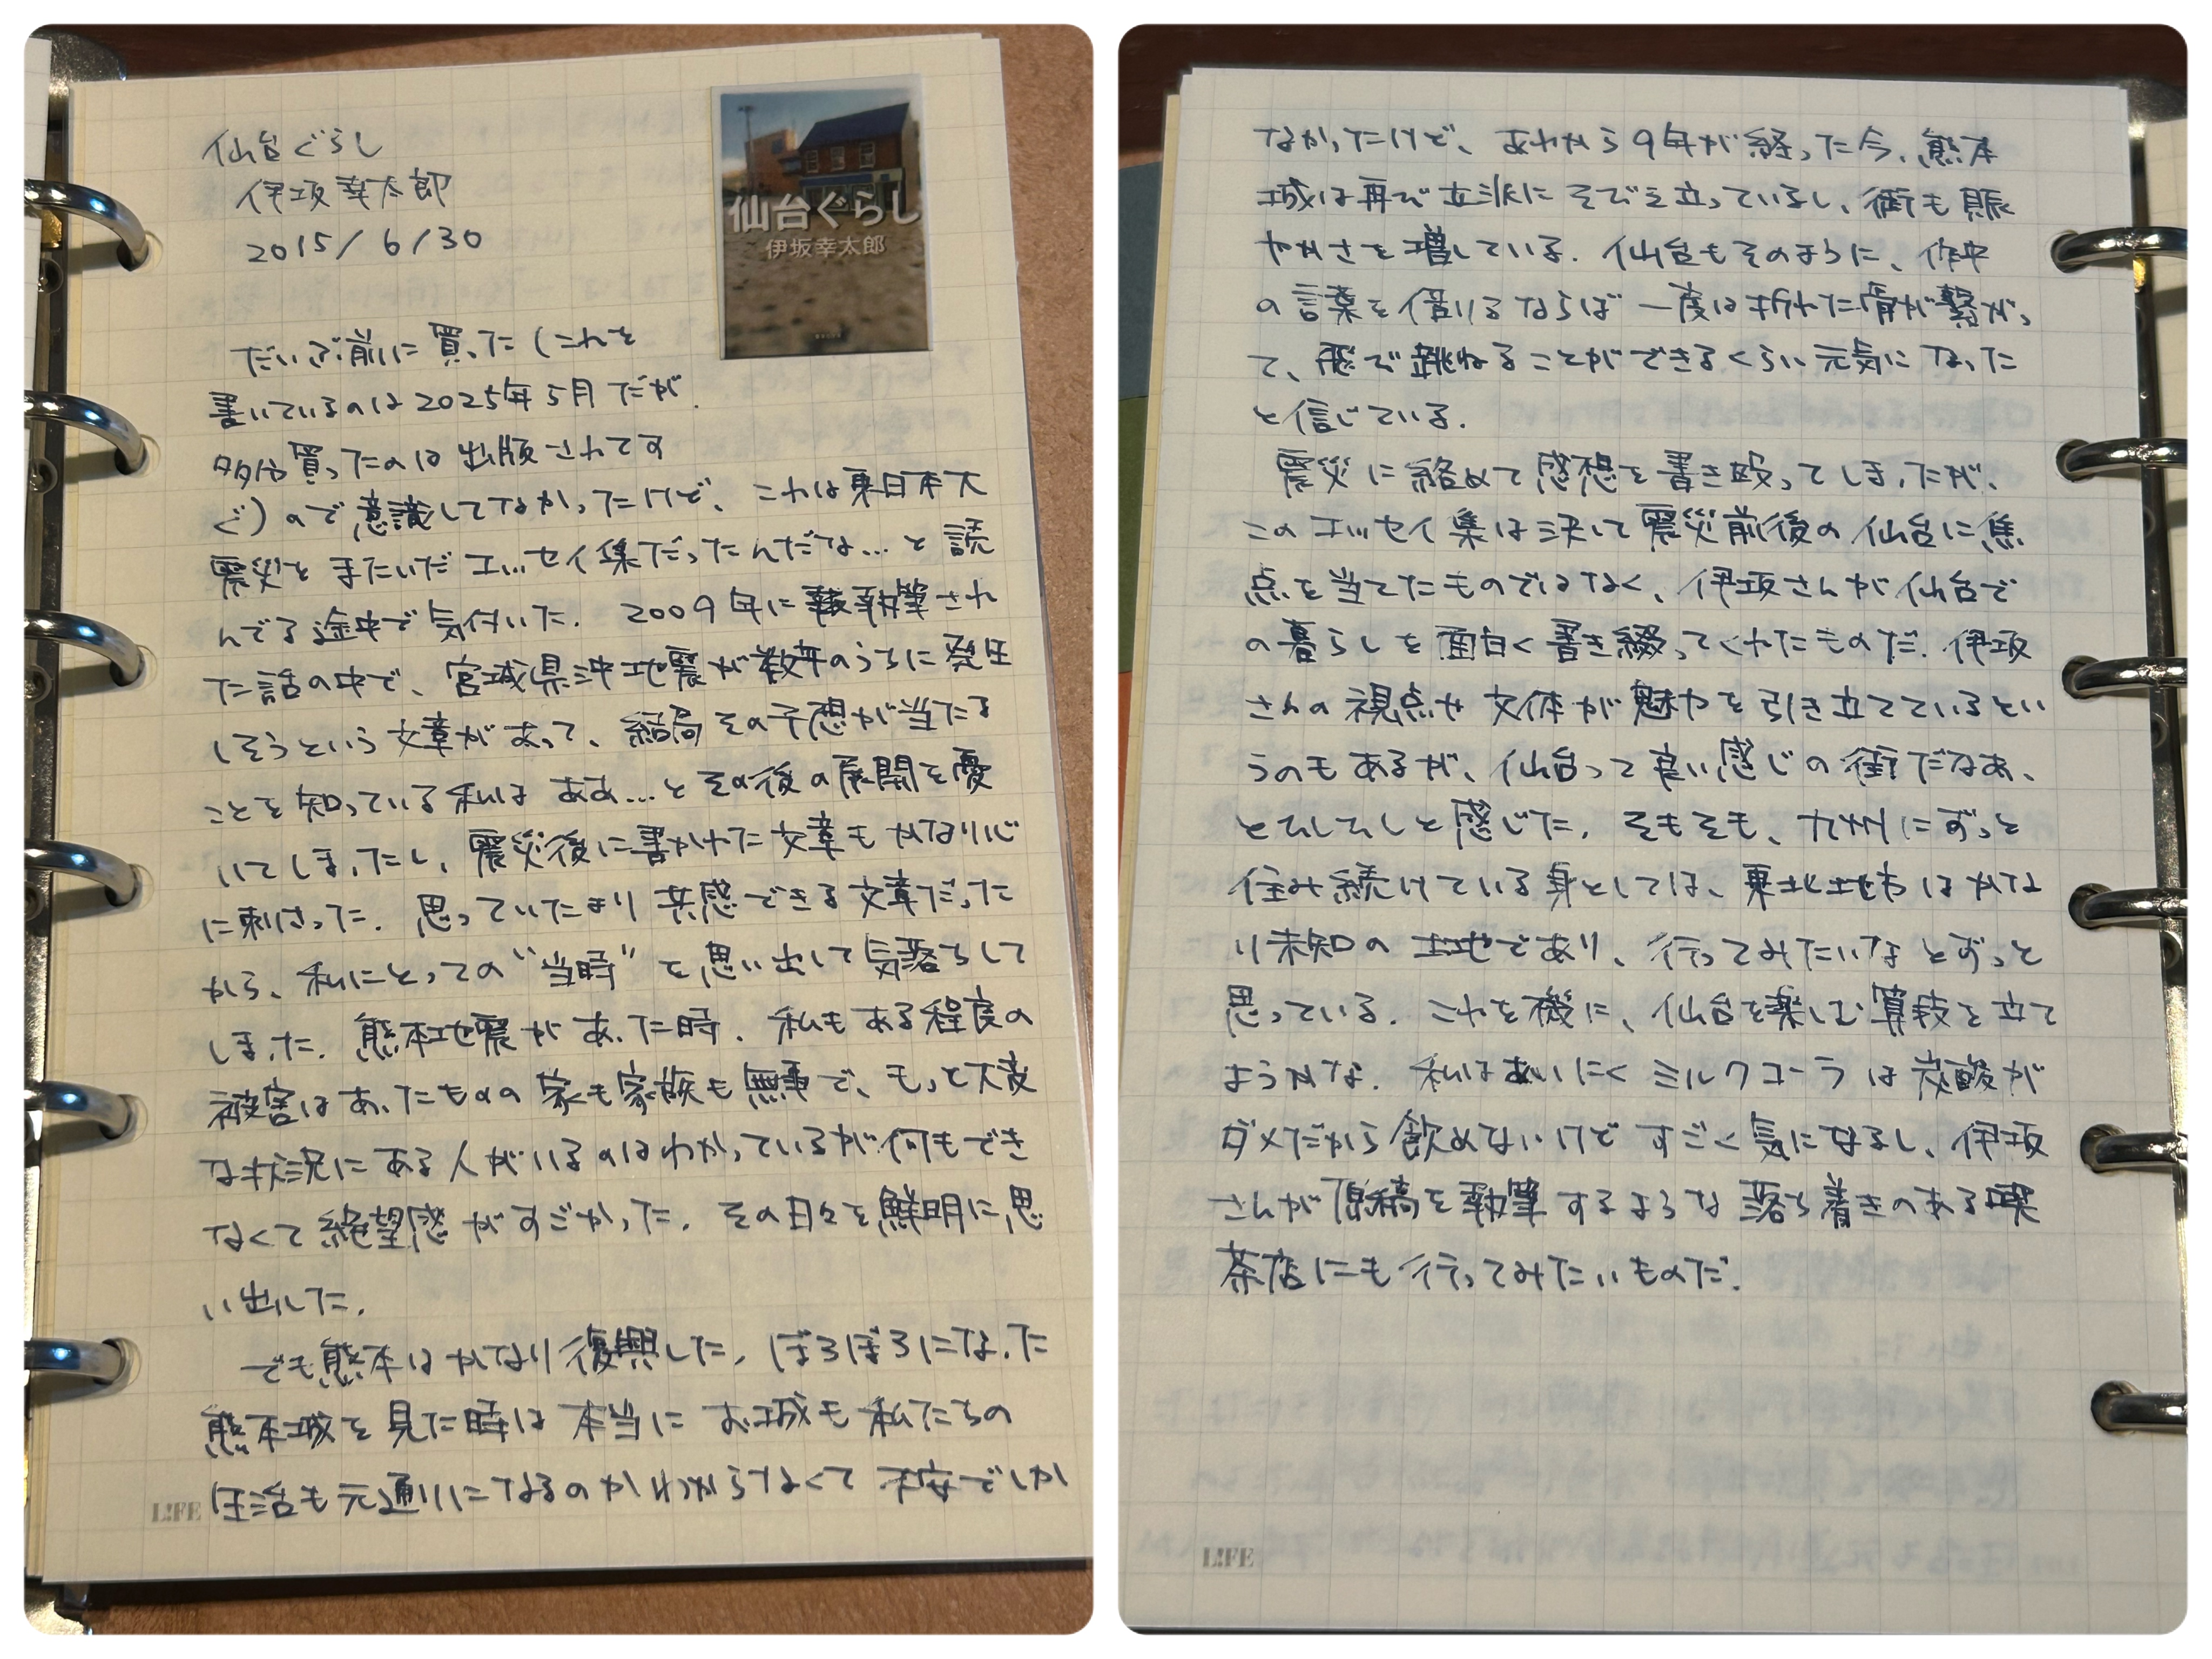 仙台ぐらし
伊坂幸太郎
2015/6/30
仙台ぐらし
伊坂幸太郎
だいぶ前に買った(これを
書いているのは2025年5月だが、
多分買ったのは出版されてす
ぐ)ので意識してなかったけど、これは東日本大
震災をまたいだエッセイ集だったんだな…と読
んでる途中で気付いた。2009年に執筆され
た話の中で、宮城県沖地震が数年のうちに発生
しそうという文章があって、結局その予想が当たる
ことを知っている私はああ…とその後の展開を憂
いてしまったし、震災後に書かれた文章もかなり心
に刺さった。思っていたより共感できる文章だった
から、私にとっての"当時"を思い出して気落ちして
しまった。熊本地震があった時、私もある程度の
被害はあったものの家も家族も無事で、もっと大変
な状況にある人がいるのはわかっているが何もでき
なくて絶望感がすごかった。その日々を鮮明に思
い出した。
でも熊本はかなり復興した。ぼろぼろになった
熊本城を見た時は本当にお城も私たちの
生活も元通りになるのかわからなくて不安でしか
L!FE
なかったけど、あれから9年が経った今、熊本
城は再び立派にそびえ立っているし、街も賑
やかさを増している。仙台もそのように、作中
の言葉を借りるならば一度は折れた骨が繋がっ
て、飛び跳ねることができるくらい元気になった
と信じている。
震災に絡めて感想を書き殴ってしまったが、
このエッセイ集は決して震災前後の仙台に焦
点を当てたものではなく、伊坂さんが仙台で
の暮らしを面白く書き綴ってくれたものだ。伊坂
さんの視点や文体が魅力を引き立てているとい
うのもあるが、仙台って良い感じの街だなあ、
とひしひしと感じた。そもそも、九州にずっと
住み続けている身としては、東北地方はかな
り未知の土地であり、行ってみたいなとずっと
思っている。これを機に、仙台を楽しむ算段を立て
ようかな。私はあいにくミルクコーラは炭酸が
ダメだから飲めないけどすごく気になるし、伊坂
さんが原稿を執筆するような落ち着きのある喫
茶店にも行ってみたいものだ。
L!FE